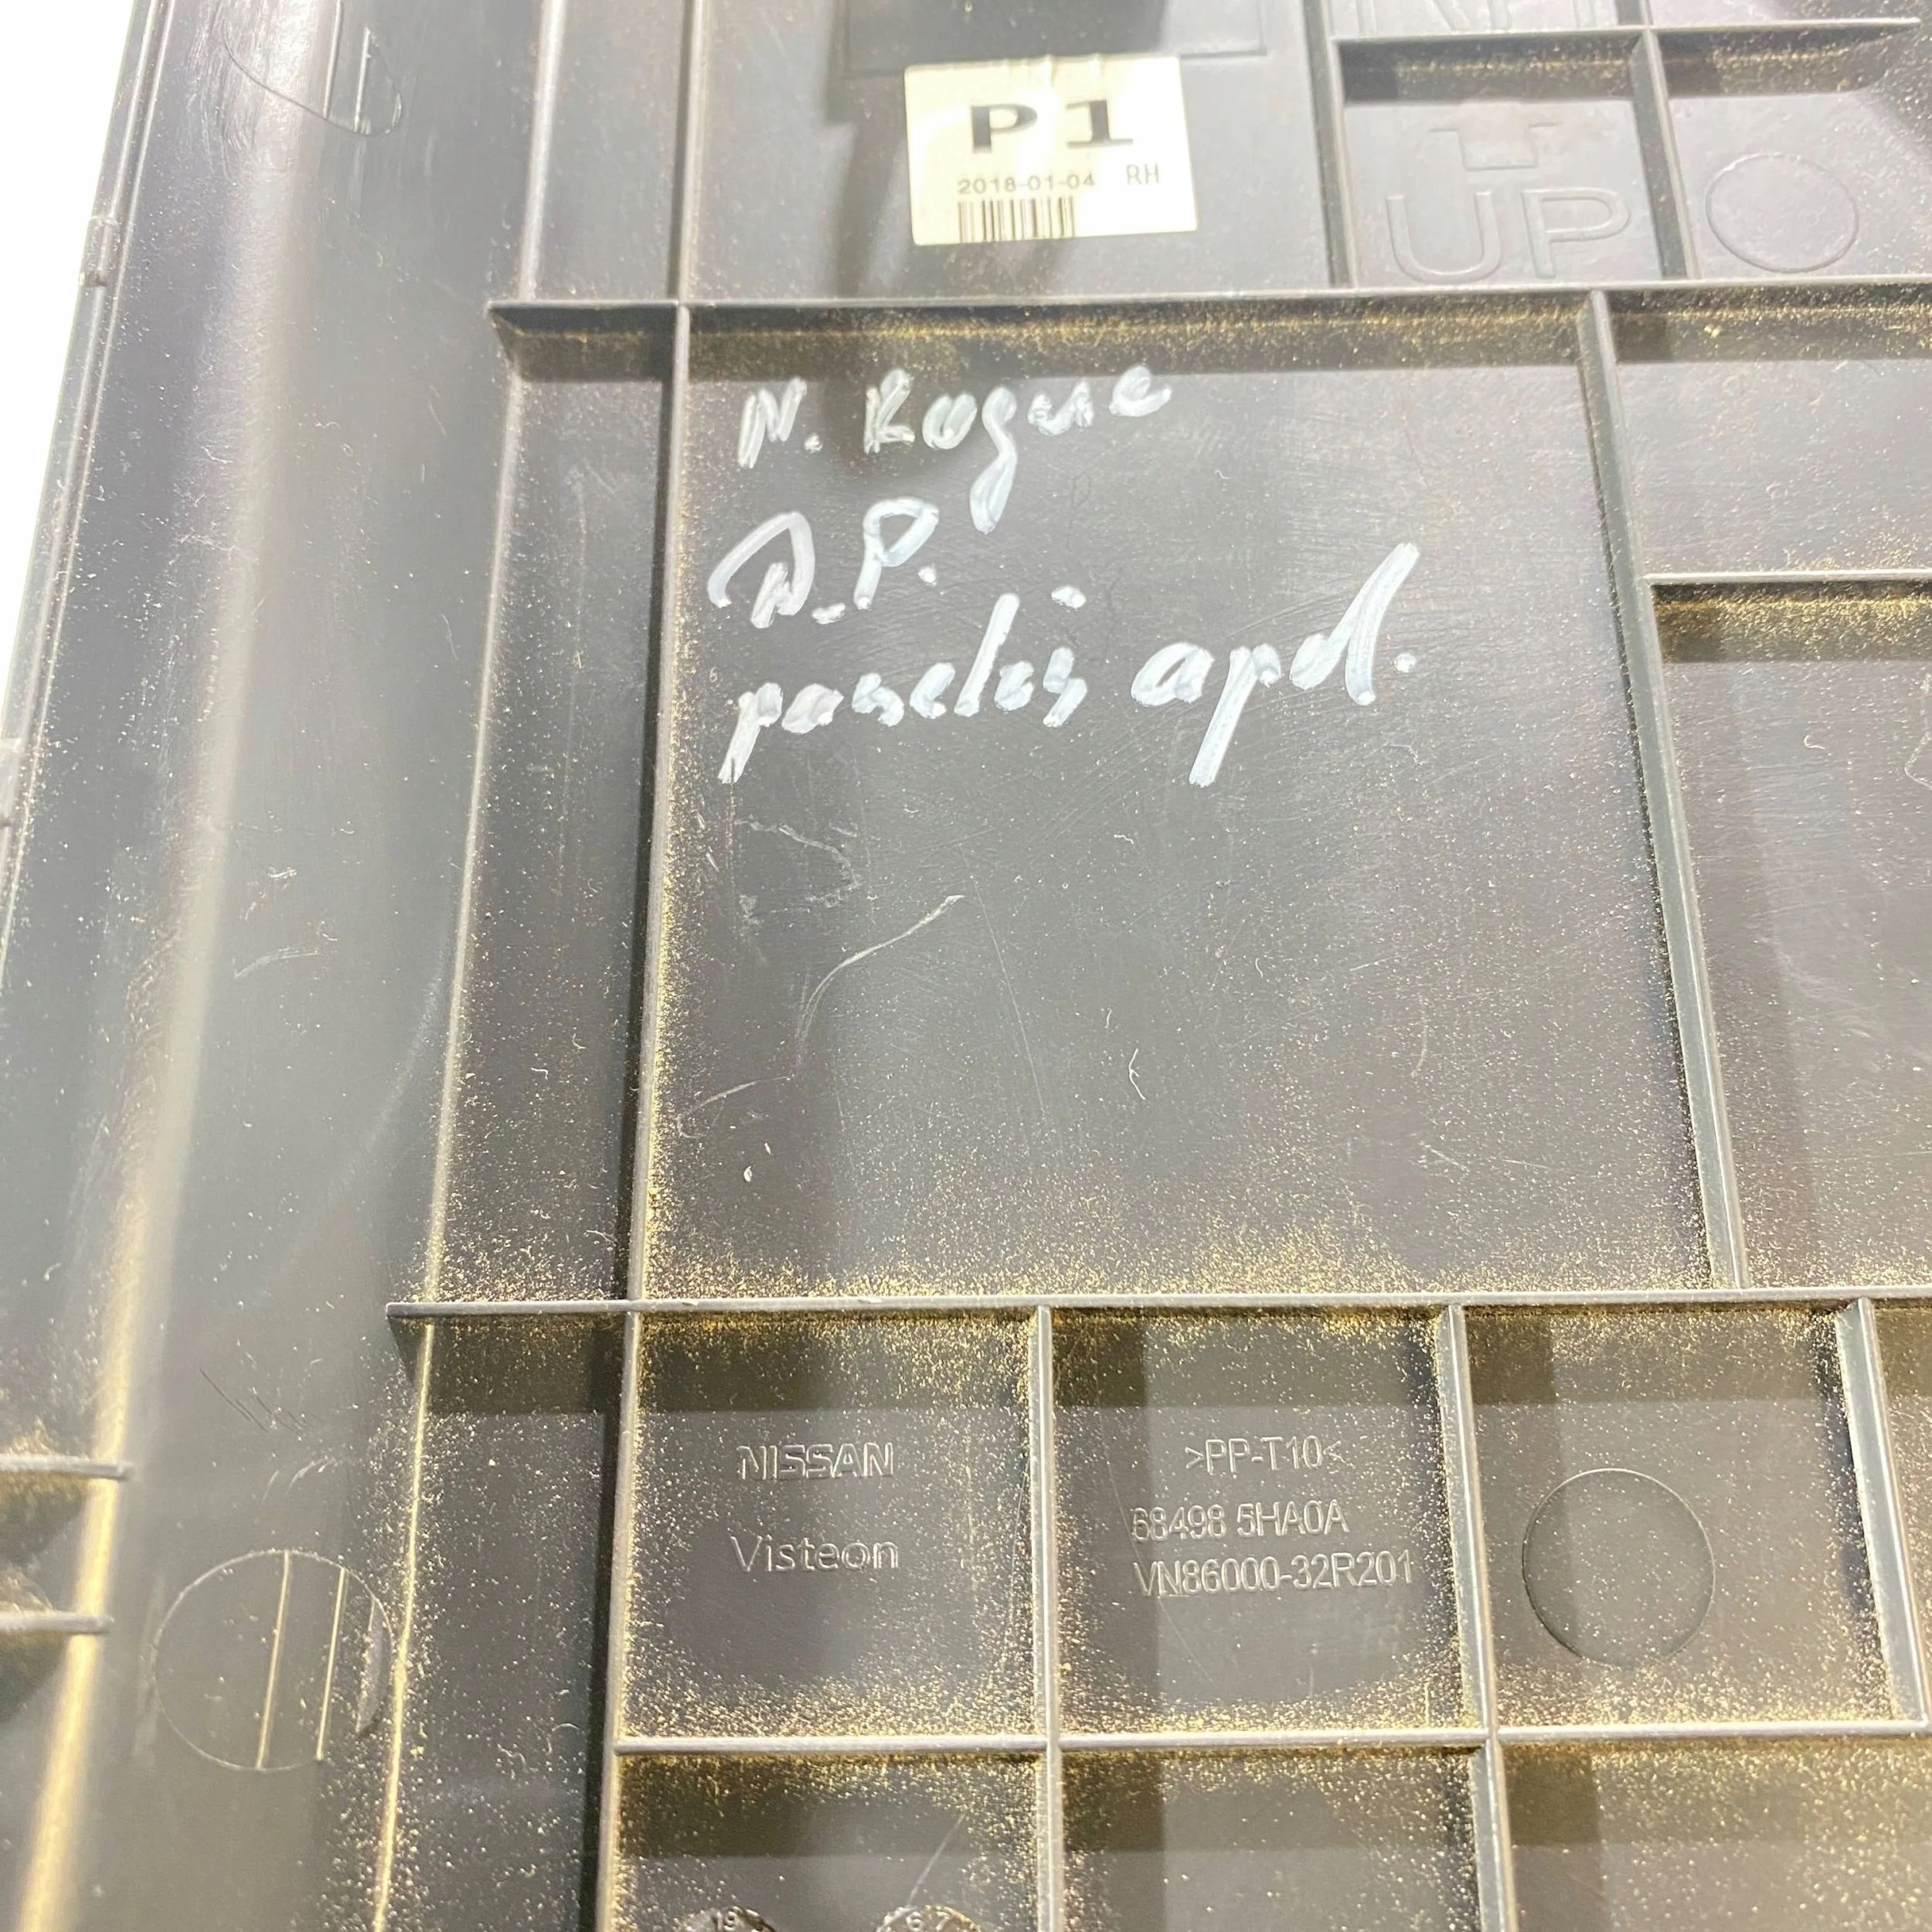 P1
2018-01-04 RH
UP
N. Rogue
D.P.
panelės apd.
NISSAN
Visteon
>PP-T10<
68498 5HA0A
VN86000-32R201
19
6 7